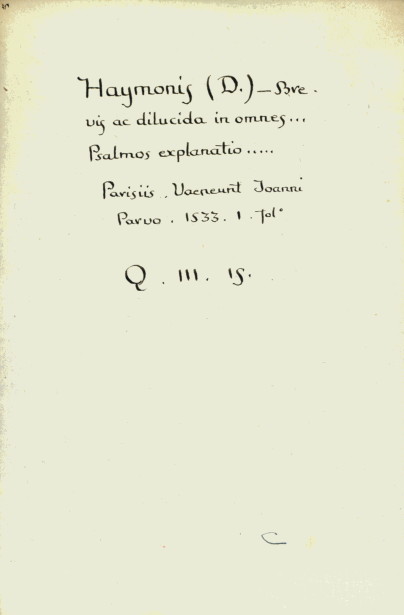 Haymonis (D.) — Bre.
vis ac dilucida in omnes...
Psalmos explanatio.....
Parisiis . Vaeneunt Joanni
Parvo . 1533 . 1 . fol°
Q . III . 15.
C